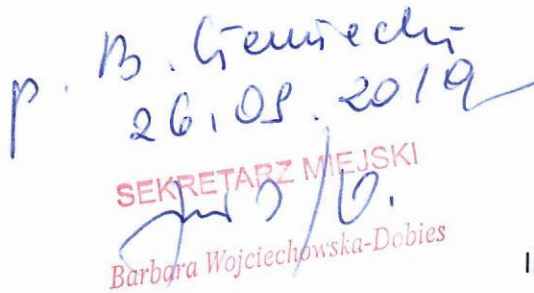 p. B. Ciemiecki
26.09.2019
SEKRETARZ MIEJSKI
Barbara Wojciechowska-Dobies
I